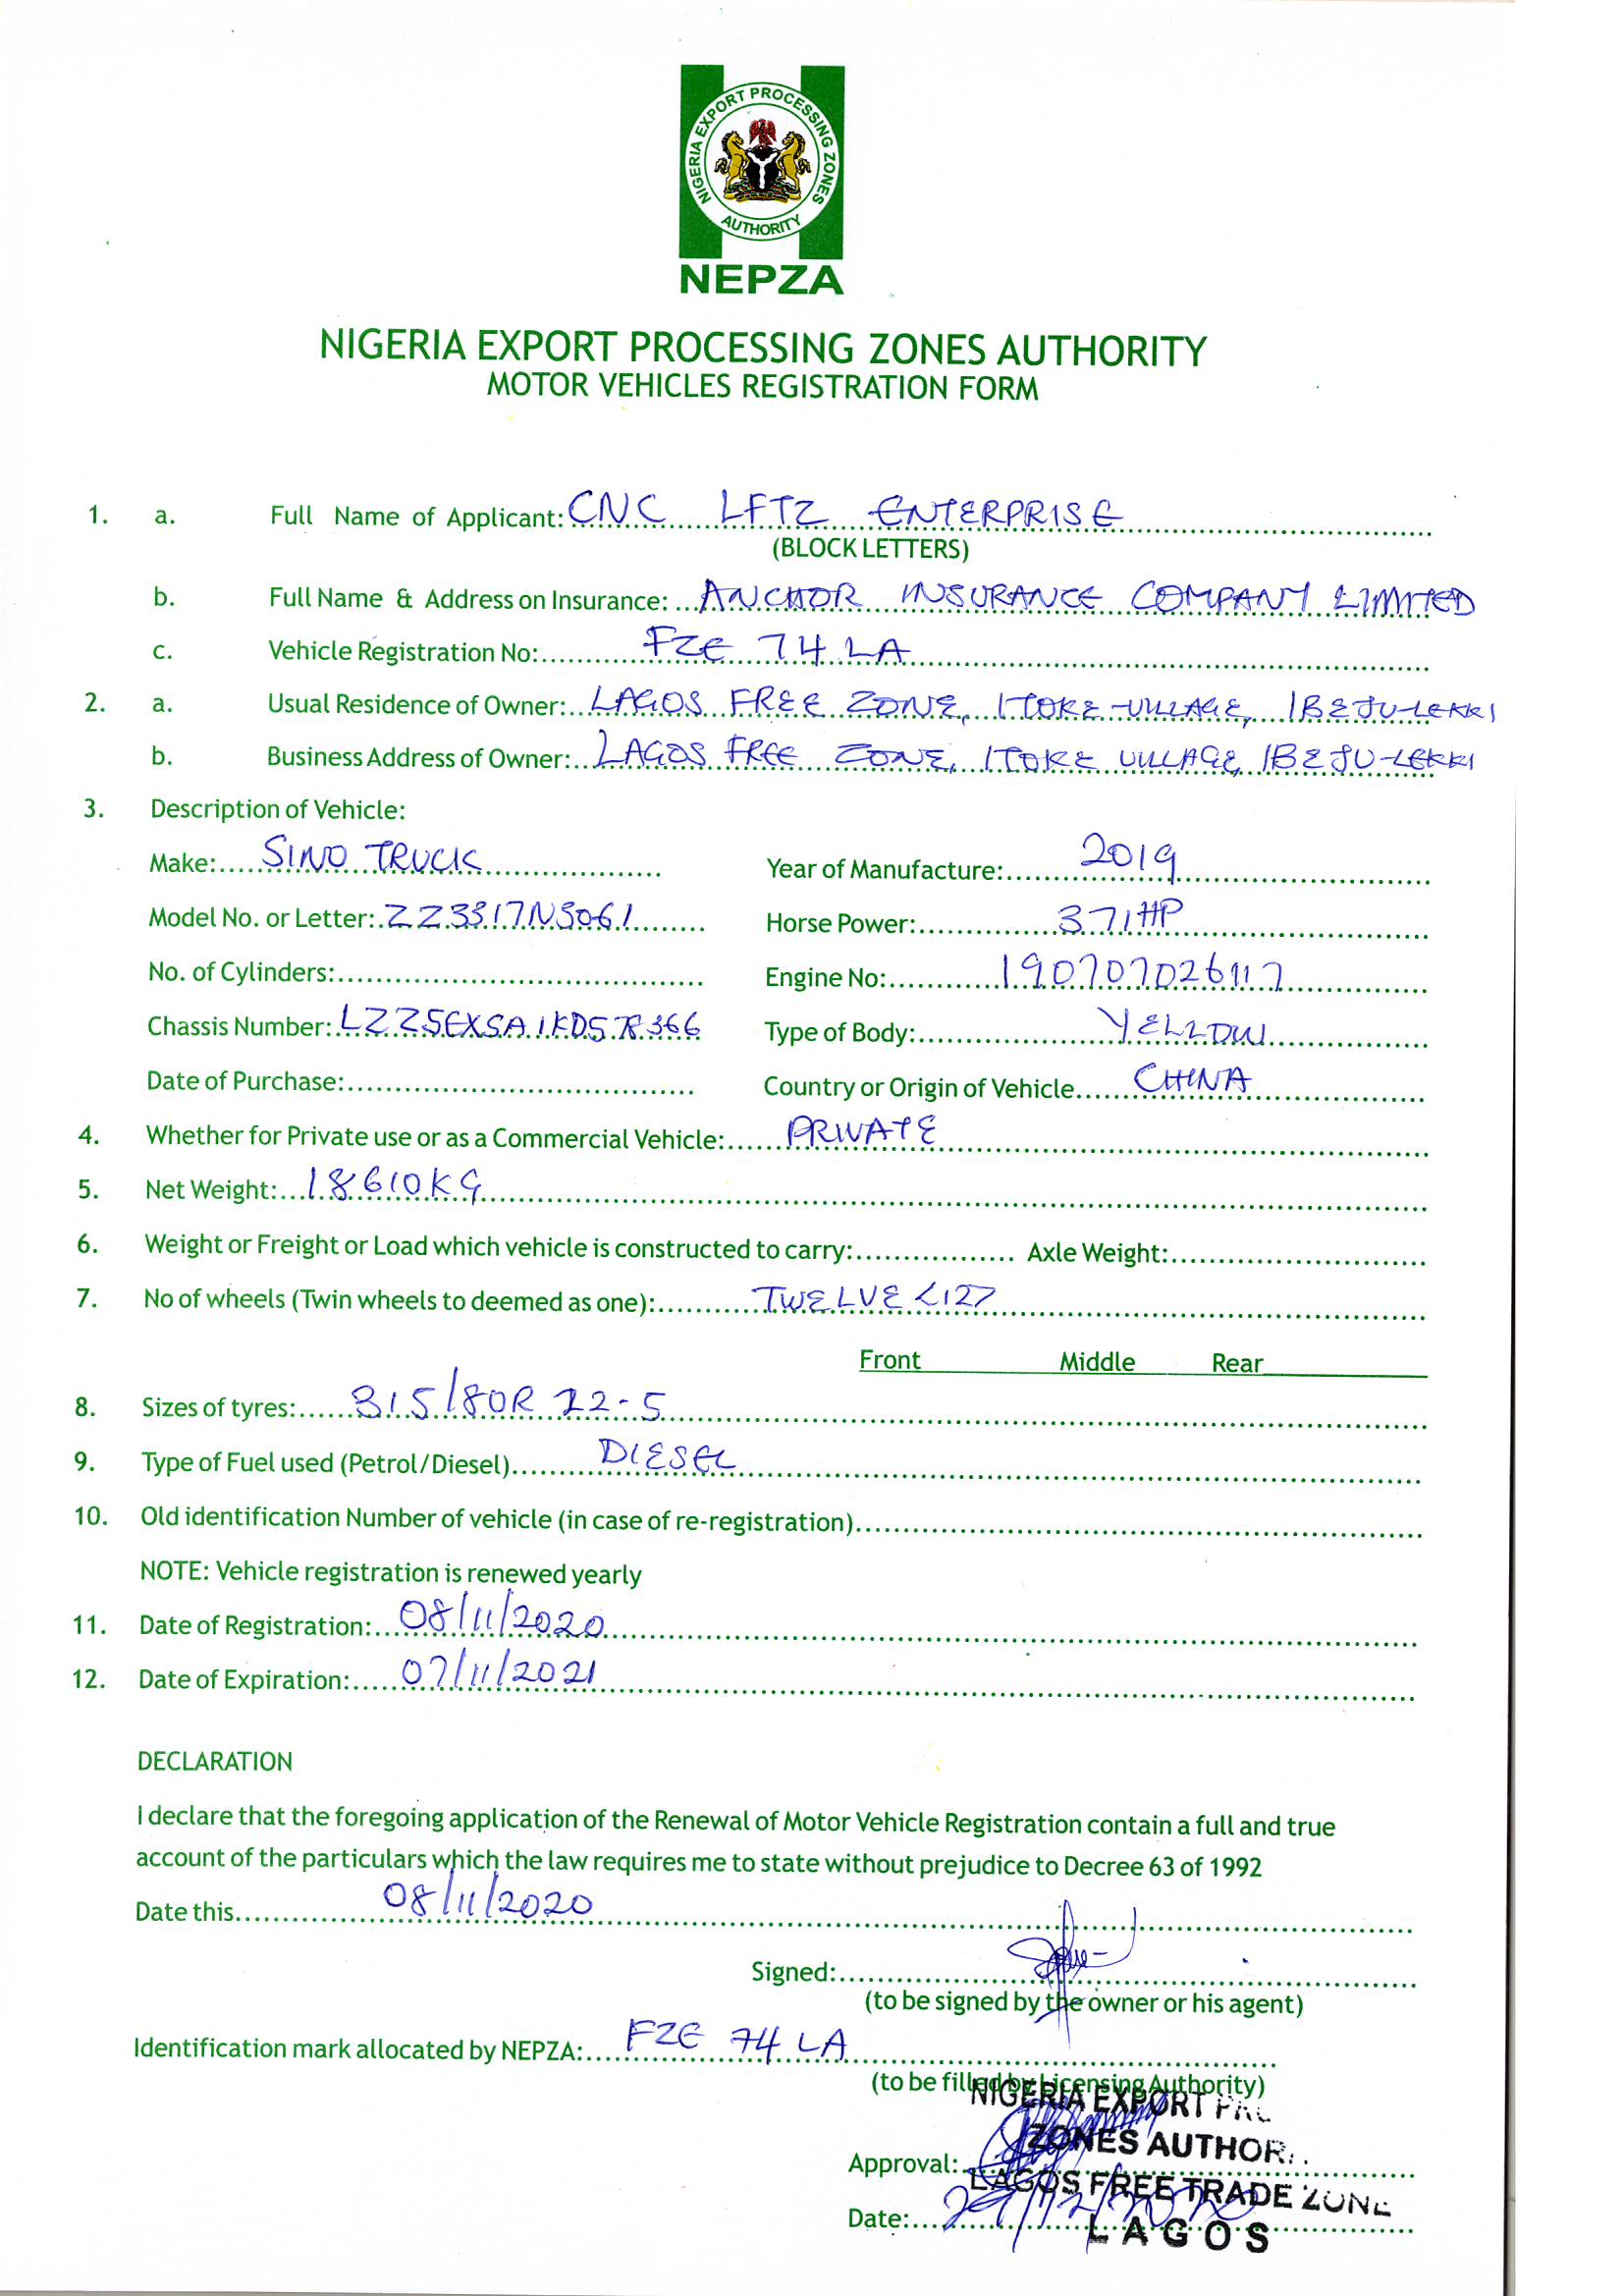 NIGERIA EXPORT PROCESSING ZONES
AUTHORITY
NEPZA
NIGERIA EXPORT PROCESSING ZONES AUTHORITY
MOTOR VEHICLES REGISTRATION FORM
1. a. Full Name of Applicant: CNC LFTZ ENTERPRISE
(BLOCK LETTERS)
b. Full Name & Address on Insurance: ANCHOR INSURANCE COMPANY LIMITED
c. Vehicle Registration No: FZE 74 LA
2. a. Usual Residence of Owner: LAGOS FREE ZONE, ITOKE-VILLAGE, IBEJU-LEKKI
b. Business Address of Owner: LAGOS FREE ZONE, ITOKE VILLAGE, IBEJU-LEKKI
3. Description of Vehicle:
Make: SINO TRUCK Year of Manufacture: 2019
Model No. or Letter: ZZ3317N3061 Horse Power: 371HP
No. of Cylinders: Engine No: 190707026117
Chassis Number: LZZ5EXSA1KD578366 Type of Body: YELLOW
Date of Purchase: Country or Origin of Vehicle CHINA
4. Whether for Private use or as a Commercial Vehicle: PRIVATE
5. Net Weight: 18610KG
6. Weight or Freight or Load which vehicle is constructed to carry: Axle Weight:
7. No of wheels (Twin wheels to deemed as one): TWELVE <127
Front Middle Rear
8. Sizes of tyres: 315/80R 22-5
9. Type of Fuel used (Petrol/Diesel) DIESEL
10. Old identification Number of vehicle (in case of re-registration)
NOTE: Vehicle registration is renewed yearly
11. Date of Registration: 08/11/2020
12. Date of Expiration: 07/11/2021
DECLARATION
I declare that the foregoing application of the Renewal of Motor Vehicle Registration contain a full and true
account of the particulars which the law requires me to state without prejudice to Decree 63 of 1992
Date this 08/11/2020
Signed:
(to be signed by the owner or his agent)
Identification mark allocated by NEPZA: FZE 74 LA
(to be filled by Licensing Authority)
NIGERIA EXPORT
ZONES AUTHOR
Approval:
LAGOS FREE TRADE ZONE
Date: 29/12/2020
LAGOS